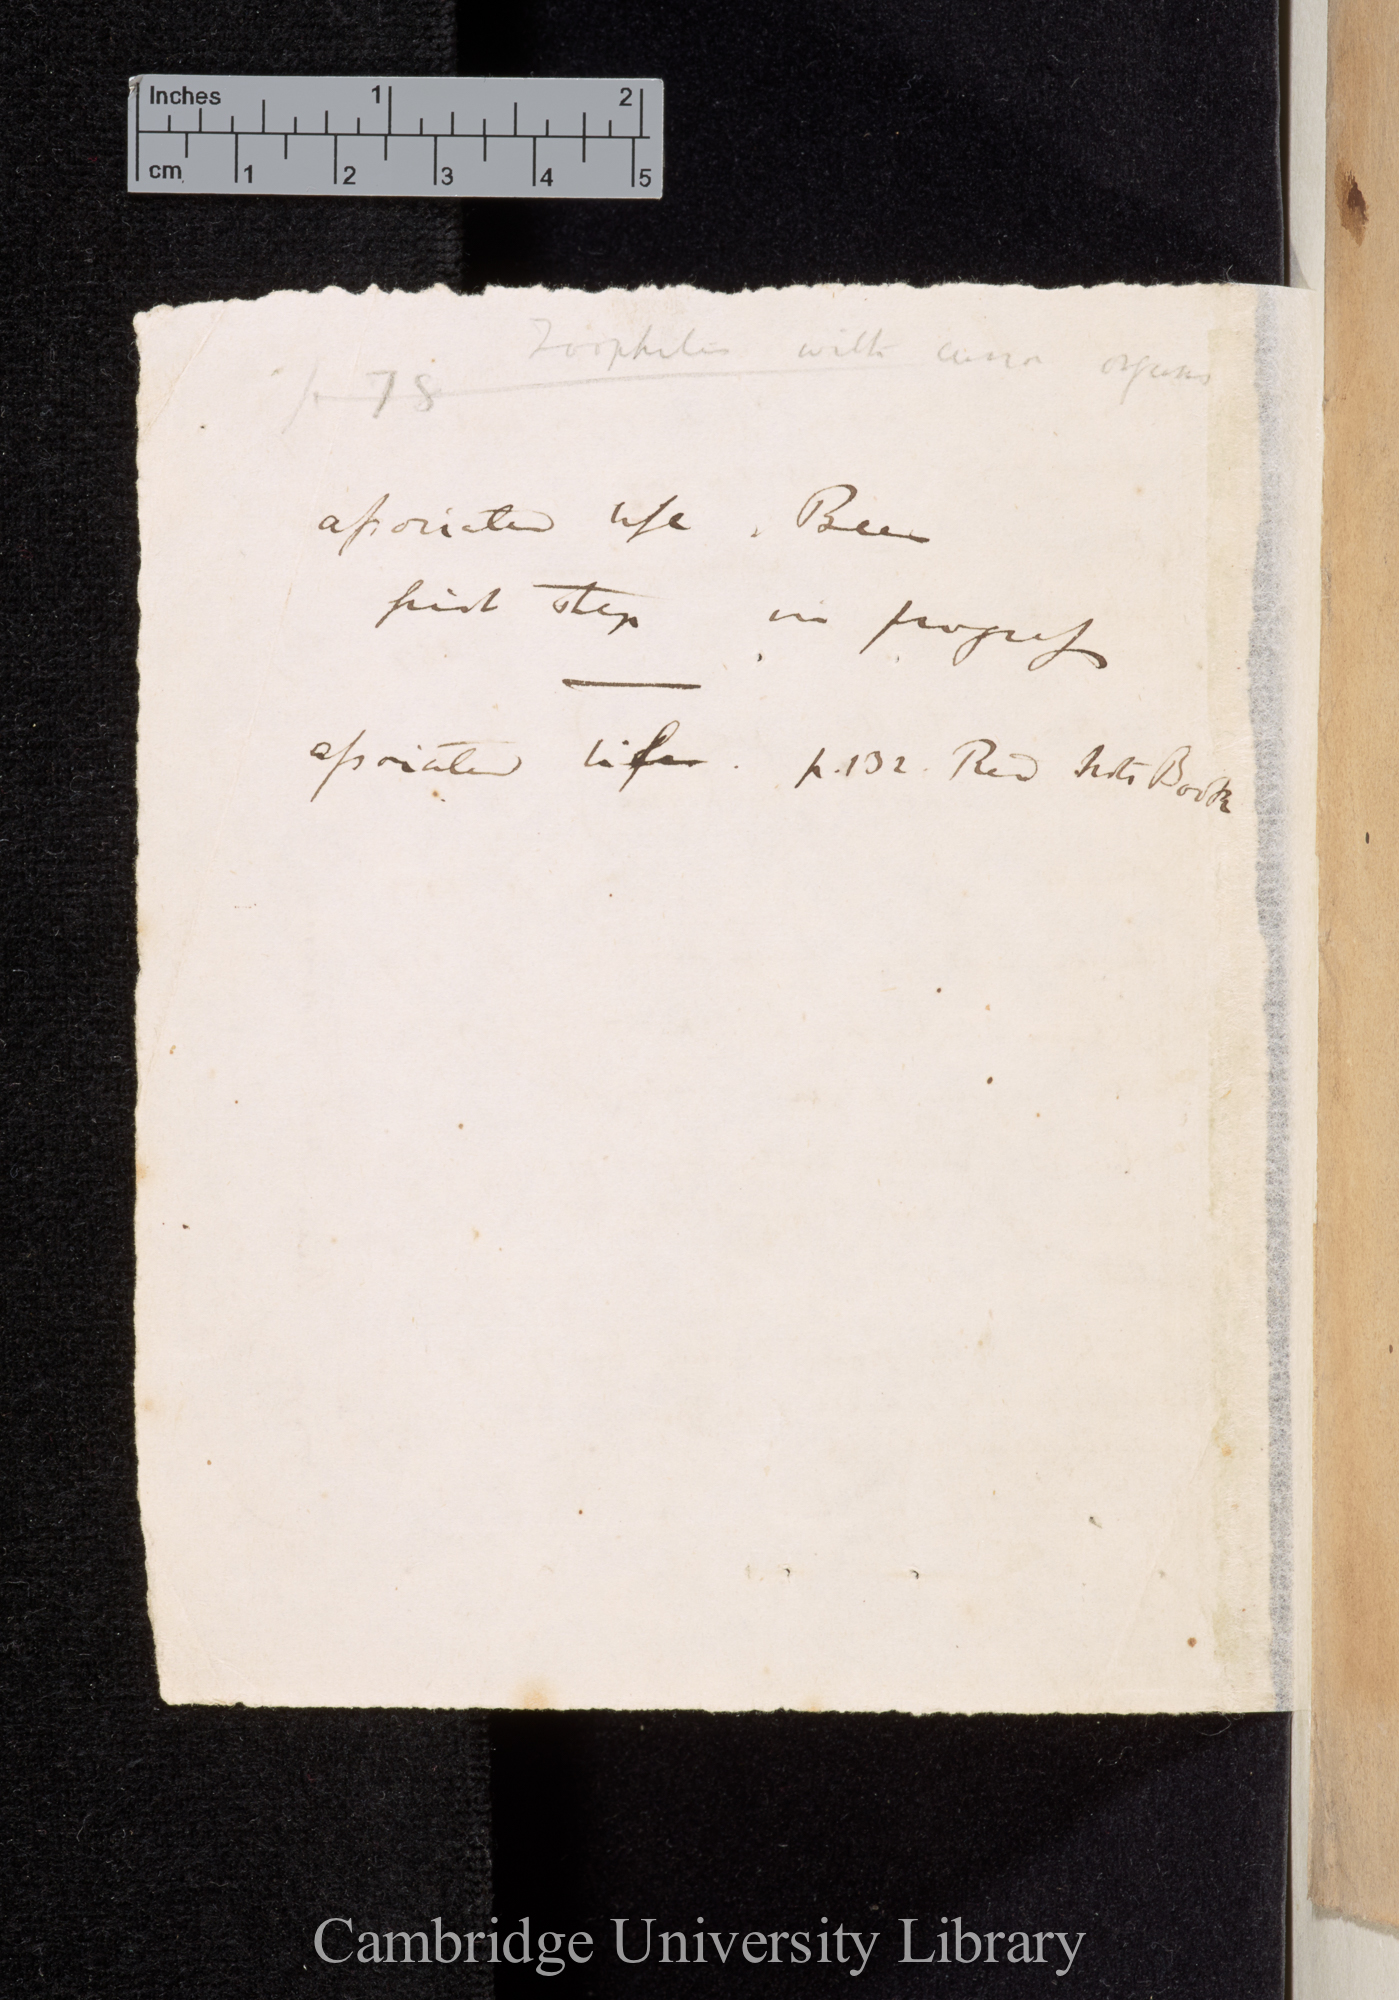 Inches 1 2
cm 1 2 3 4 5
Zoophites with
p 78 organs
associated life. Bees
first step in progress
associated life. p. 132. Red Note Book
Cambridge University Library